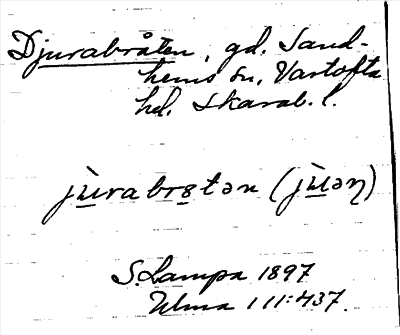 Djurabråten, gd. Sand-
hems sn, Vartofta
hd. Skarab. l.
jù̲rabrꞩ̲tən (jù̲əɳ)
S. Lampa 1897
Ulma 111:437.